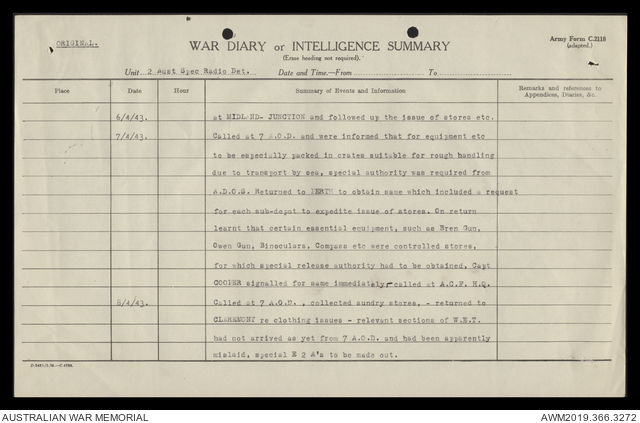 ORIGINAL.
WAR DIARY or INTELLIGENCE SUMMARY
Army Form C.2118
(adapted.)
(Erase heading not required).
Unit 2 Aust Spec Radio Det. Date and Time.—From To
Place Date Hour Summary of Events and Information Remarks and references to Appendices, Diaries, &c.
6/4/43. at MIDLAND- JUNCTION and followed up the issue of stores etc.
7/4/43. Called at 7 A.O.D. and were informed that for equipment etc
to be especially packed in crates suitable for rough handling
due to transport by sea, special authority was required from
A.D.O.S. Returned to PERTH to obtain same which included a request
for each sub-depot to expedite issue of stores. On return
learnt that certain essential equipment, such as Bren Gun,
Owen Gun, Binoculars, Compass etc were controlled stores,
for which special release authority had to be obtained, Capt
COOPER signalled for same immediately - called at A.C.F. H.Q.
8/4/43. Called at 7 A.O.D. , collected sundry stores, - returned to
CLAREMONT re clothing issues - relevant sections of W.E.T.
had not arrived as yet from 7 A.O.D. and had been apparently
mislaid, special E 2 A's to be made out.
AUSTRALIAN WAR MEMORIAL
AWM2019.366.3272